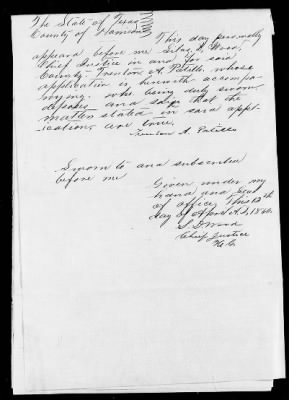 The State of Texas
County of Harrison
This day personally
appeared before me Silas D. Wood,
Chief Justice in and for said
County Trenton A. Patillo whose
application is herewith accompa-
nying. who being duly sworn,
deposes and says that the
matters stated in said appl-
ication, are true.
Trenton A. Patillo
Sworn to and subscribed
before me
Given under my
hand and seal
of office, this 12th
day of April A.D. 186
S. D. Wood
Chief Justice
H.C.